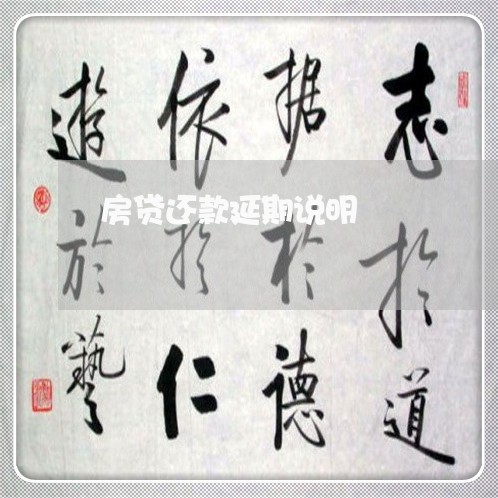 志於道
据於德
依於仁
遊於藝
房贷还款延期说明